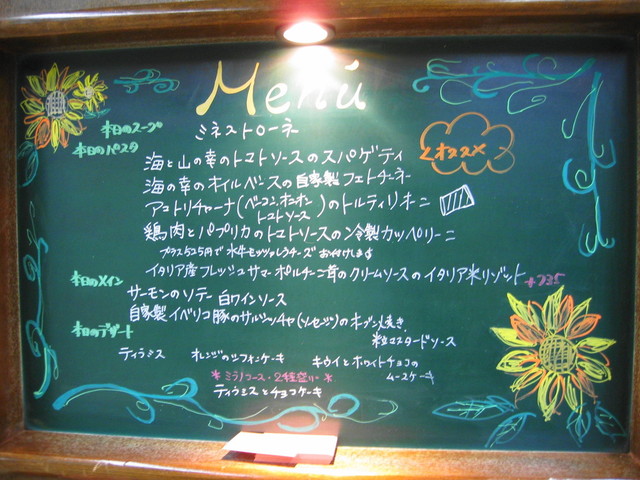 Menú
本日のスープ
ミネストローネ
本日のパスタ
オススメ
海と山の幸のトマトソースのスパゲティ
海の幸のオイルベースの自家製フェトチーネ
アマトリチャーナ(ベーコン、オニオン
トマトソース)のトルティリオーニ
鶏肉とパプリカのトマトソースの冷製カッペリーニ
プラス525円で水牛モッツァレラチーズお付けします
イタリア産フレッシュサマーポルチーニ茸のクリームソースのイタリア米リゾット +735
本日のメイン
サーモンのソテー 白ワインソース
自家製イベリコ豚のサルシッチャ(ソーセージ)のオーブン焼き
粒マスタードソース
本日のデザート
ティラミス オレンジのシフォンケーキ キウイとホワイトチョコの
ムースケーキ
*ミラノコース・2種盛り*
ティラミスとチョコケーキ